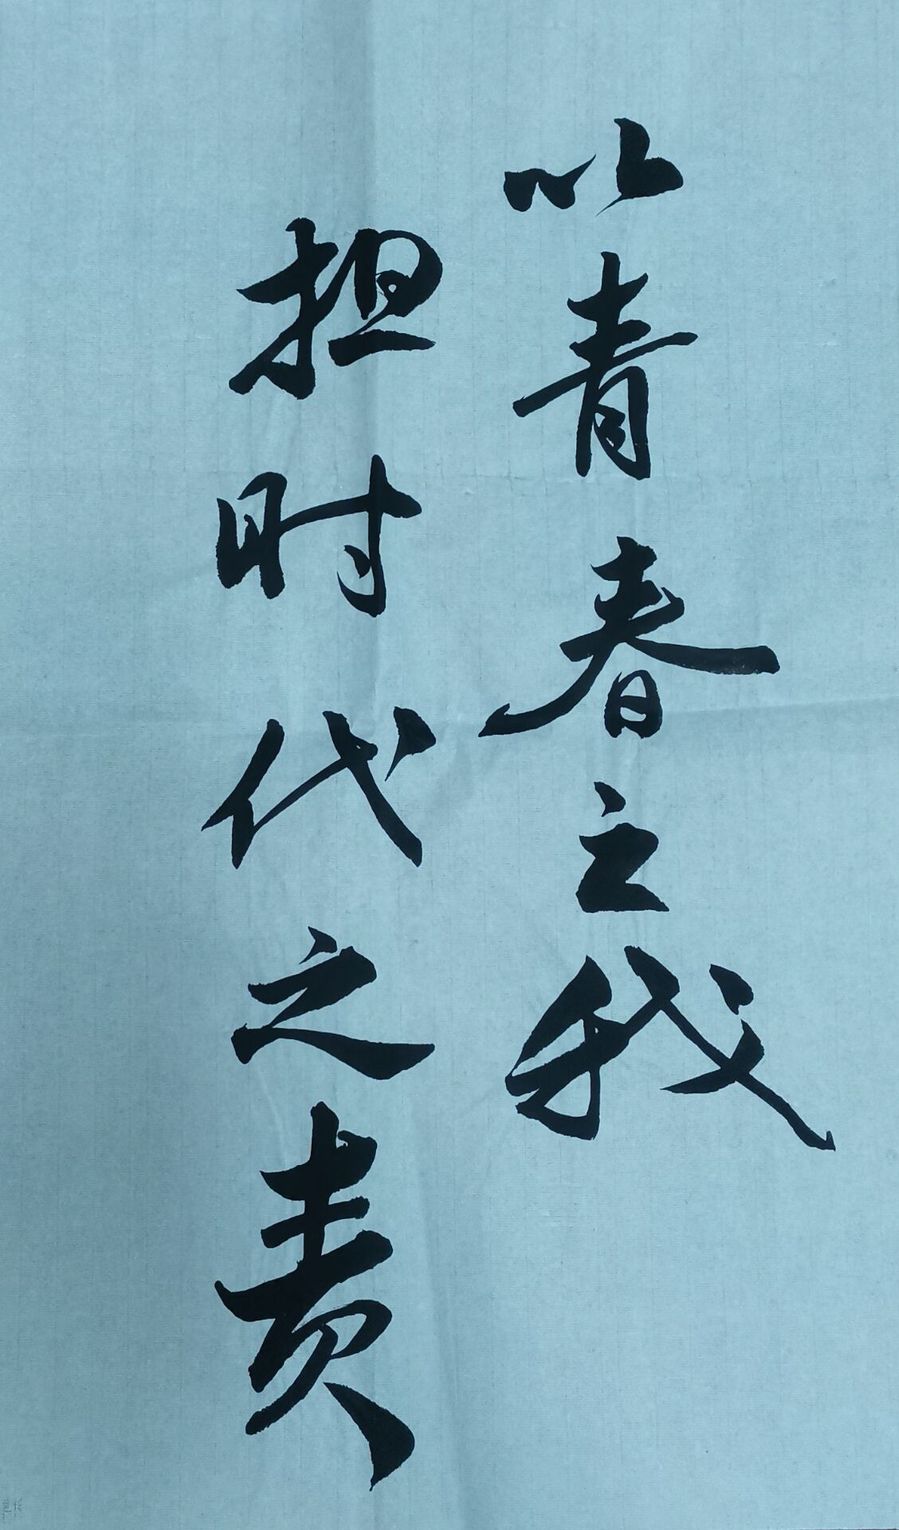 以青春之我
担时代之责